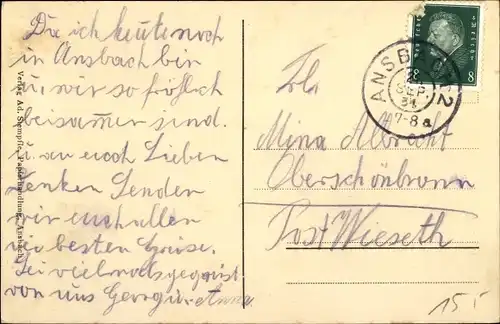 Da ich heute noch
in Ansbach bin
u. wir so fröhlich
beisamen sind.
u. an euch Lieben
denken Senden
wir euch allen
die besten Grüse.
Sei vielmals gegrüst
von uns Georg u.
Verlag Ad. Stempfle, Papierhandlung, Ansbach
8 8
ANSBACH 2
2.
SEP.
31
7-8 a
Frl.
Mina Albrecht
Oberschönbronn
Post Wieseth
155